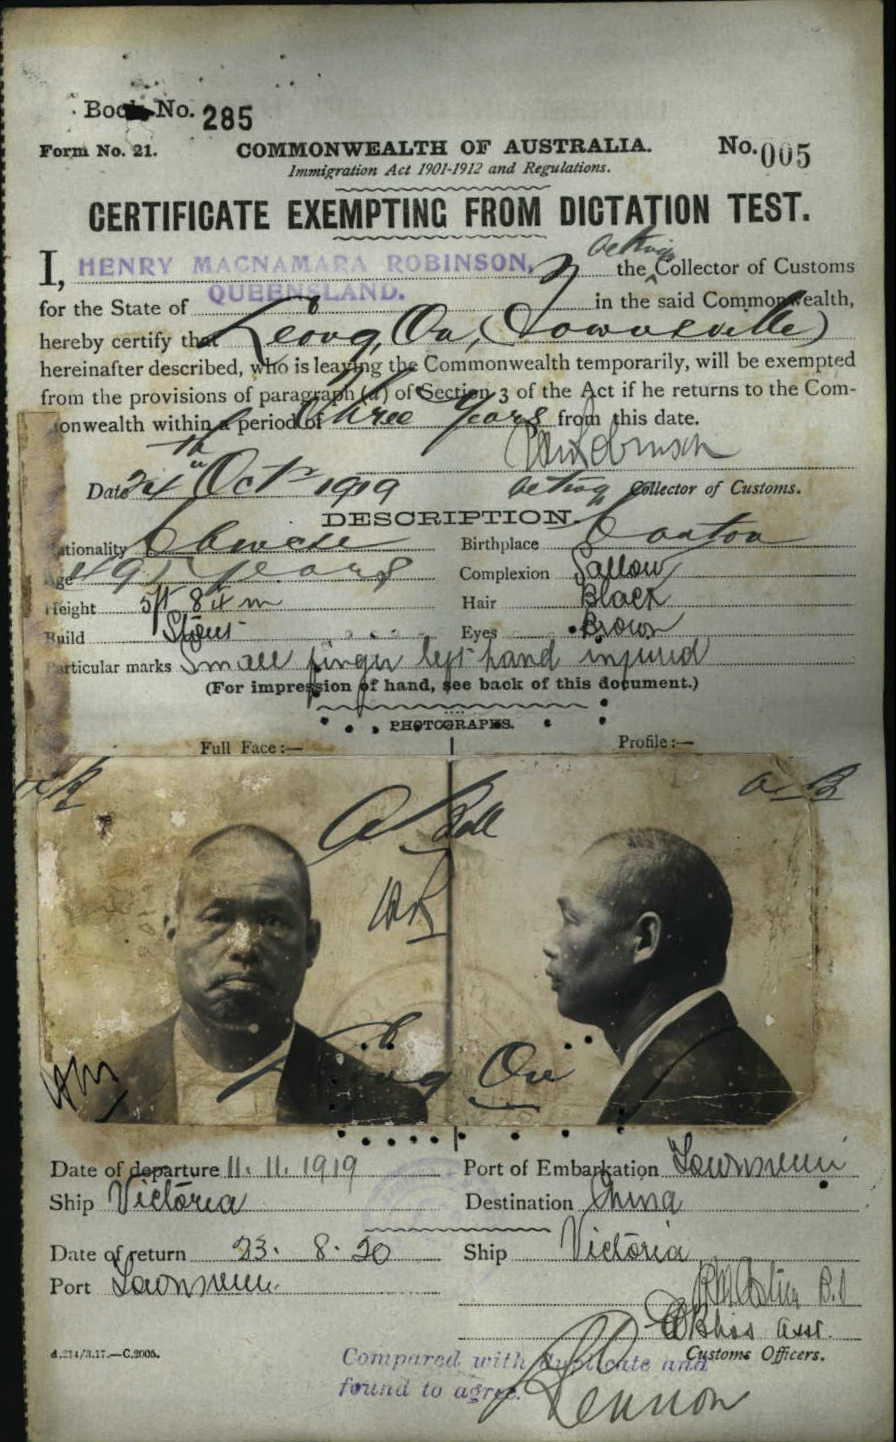 Book No. 285
Form No. 21. COMMONWEALTH OF AUSTRALIA. No. 005
Immigration Act 1901-1912 and Regulations.
CERTIFICATE EXEMPTING FROM DICTATION TEST.
I, HENRY MACNAMARA ROBINSON, the Acting Collector of Customs
for the State of QUEENSLAND. in the said Commonwealth,
hereby certify that Leong On, (Townsville)
hereinafter described, who is leaving the Commonwealth temporarily, will be exempted
from the provisions of paragraph (a) of Section 3 of the Act if he returns to the Com-
onwealth within a period of Three Years from this date.
HMRobinson
Date 24th Octr 1919 Acting Collector of Customs.
DESCRIPTION.
ationality Chinese Birthplace Canton
Age 49½ years Complexion Sallow
Height 5ft 8¼ in Hair Black
Build Stout Eyes Brown
articular marks Small finger left hand injured
(For impression of hand, see back of this document.)
PHOTOGRAPHS.
Full Face:— Profile:—
A B
A Bell
On
Date of departure 11. 11. 1919 Port of Embarkation Townsville
Ship Victoria Destination China
Date of return 23. 8. 20 Ship Victoria
Port Townsville
Asst.
Customs Officers.
d.214/3.17.—C.2005.
Compared with duplicate and
found to agree.
Lennon